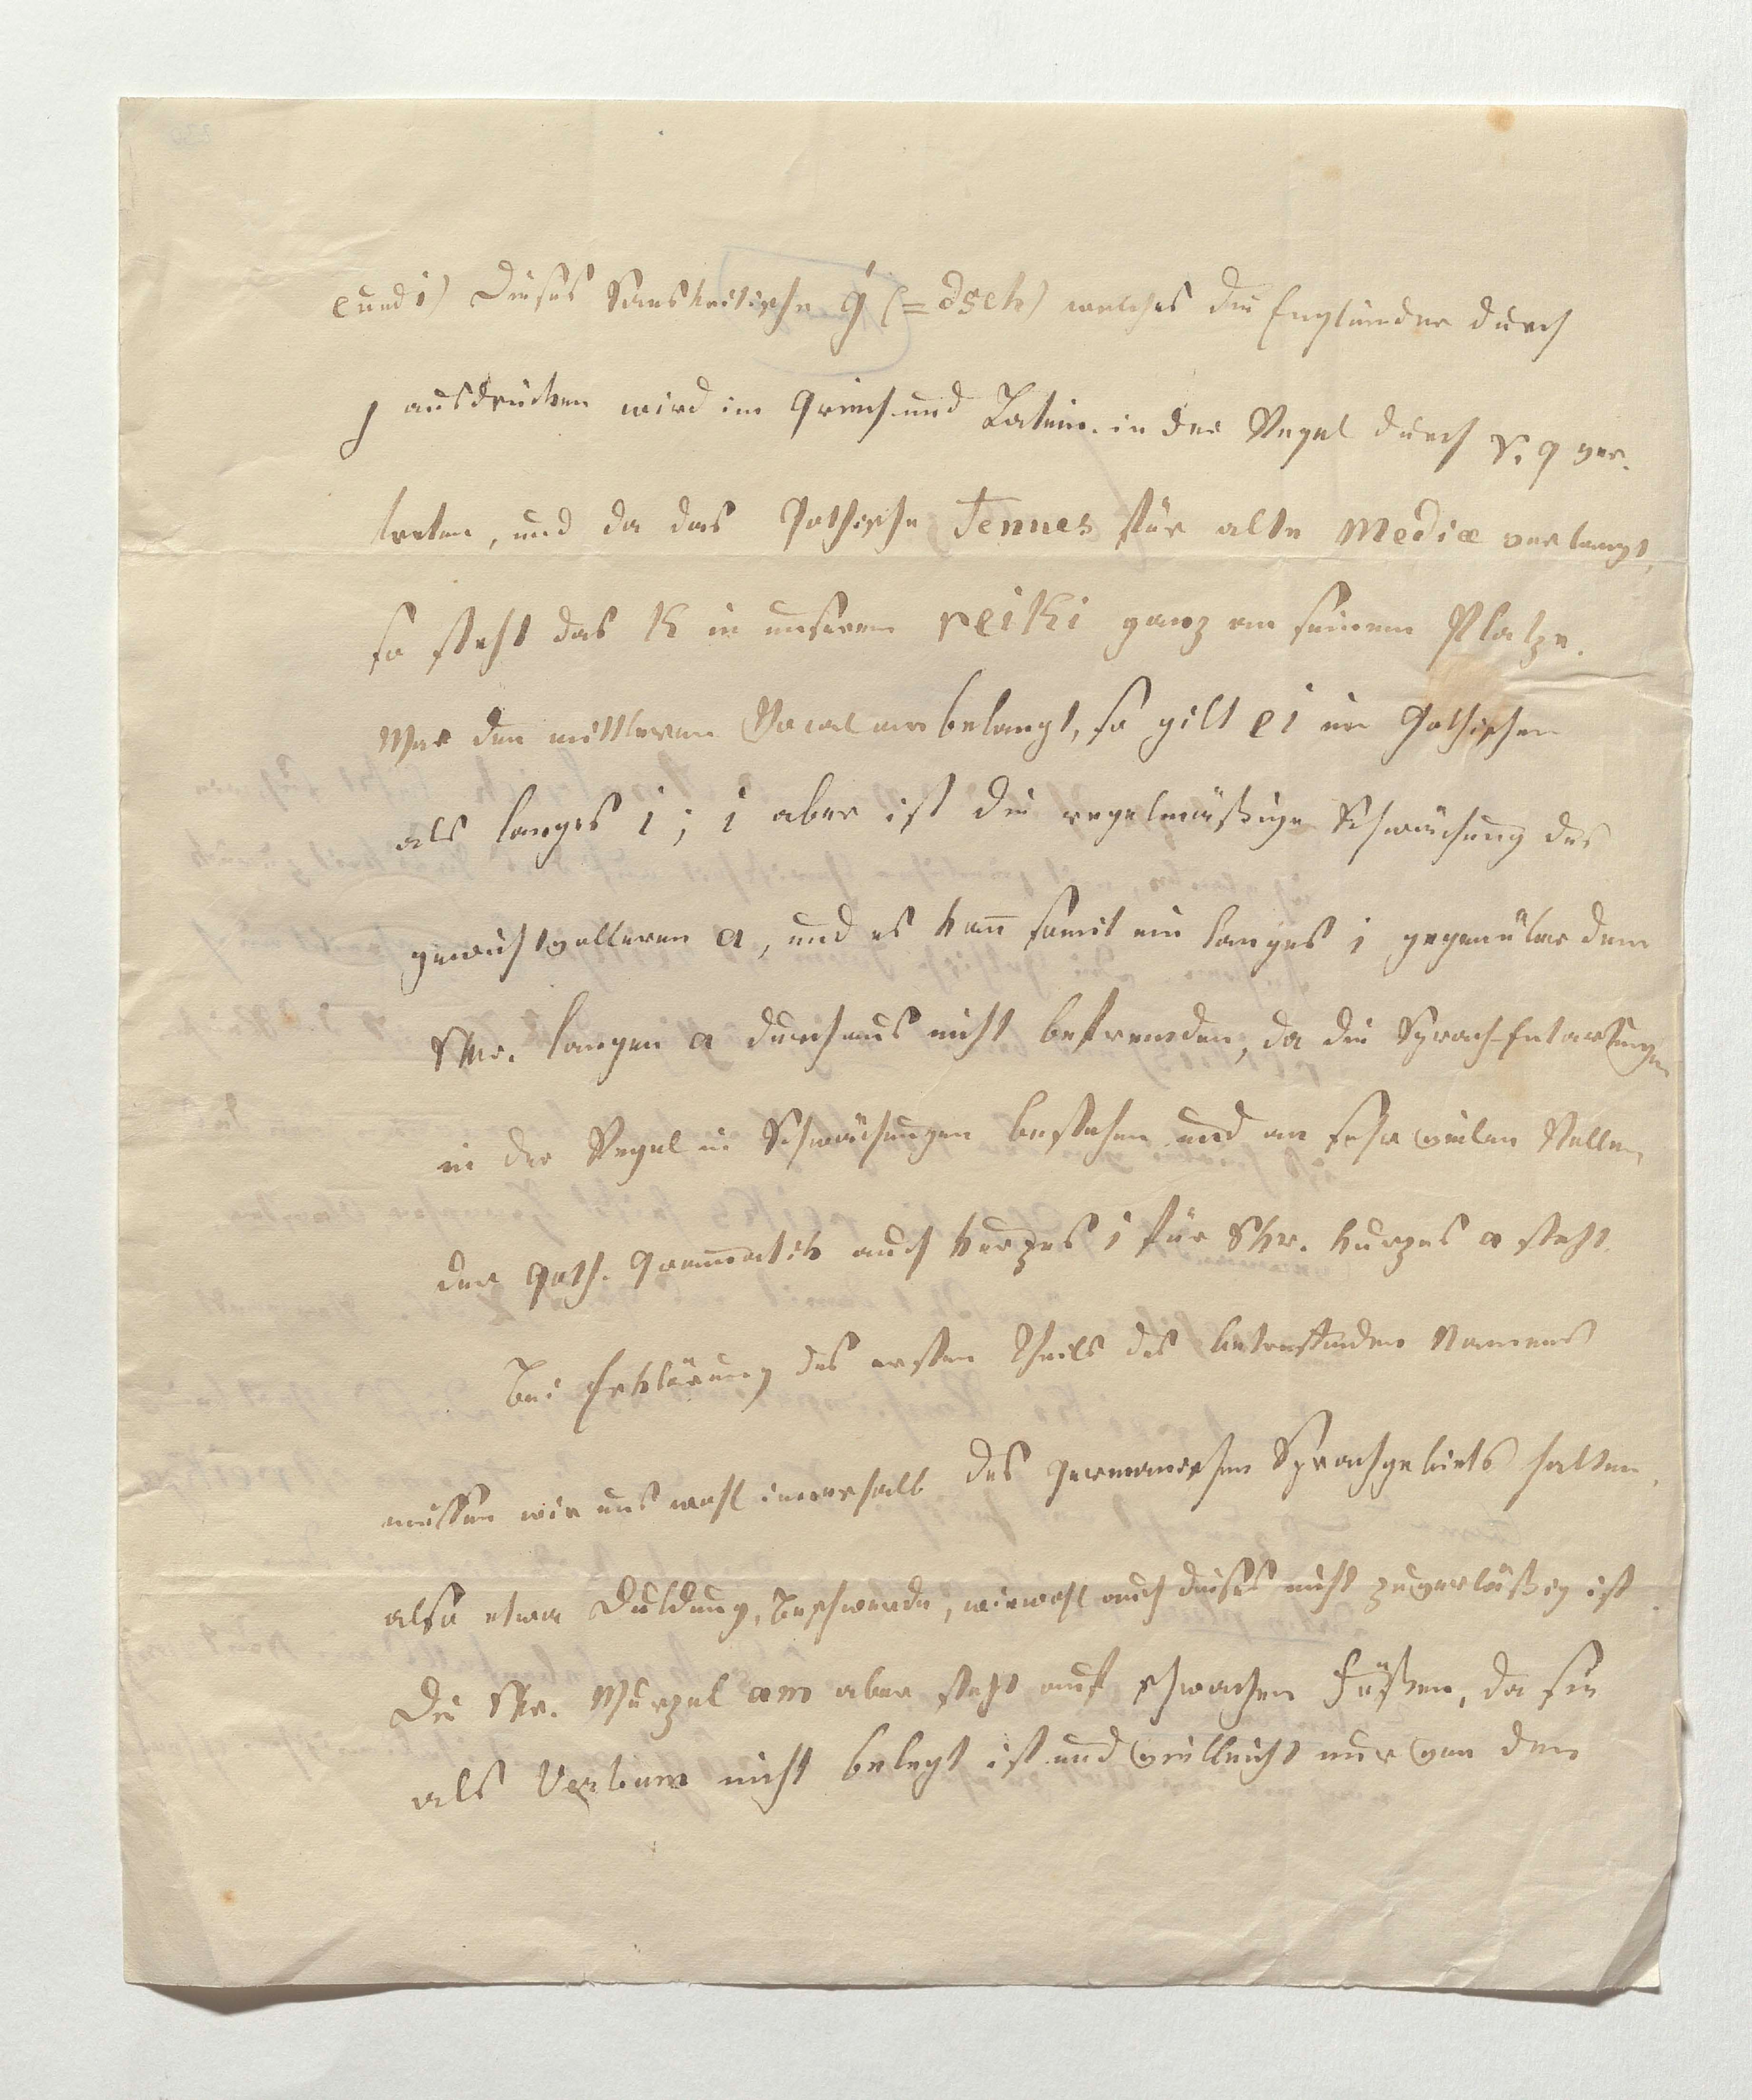 e und i) Dieses Sanskritische ģ (= dsch) welches die Engländer durch
j ausdrücken wird im Griech. und Latein. in der Regel durch γ, g ver-
treten, und da das Gothische Tenues für alte Mediæ verlangt,
so steht das k in unserem reiki ganz an seinem Platze.
Was den mittleren Vocal anbelangt, so gilt ei im Gothischen
als langes i; i aber ist die regelmäßige Schwächung des
gewichtvolleren a, und es kañ somit ein langes i gegenüber dem
Skr. langen a durchaus nicht befremden, da die Sprach-Entartungen
in der Regel in Schwächungen bestehen und an sehr vielen Stellen
der Goth. Gram̄atik auch kurzes i für Skr. kurzes a steht.
Bei Erklärung des ersten Theils des betreffenden Namens
müssen wir uns wohl innerhalb des Germanischen Sprachgebiets halten,
also etwa Duldung, Beschwerde, wiewohl auch dieses nicht zuverläßig ist.
Die Skr. Wurzel am aber steht auf schwachen Füßen, da sie
als Verbum nicht belegt ist und vielleicht nur von den